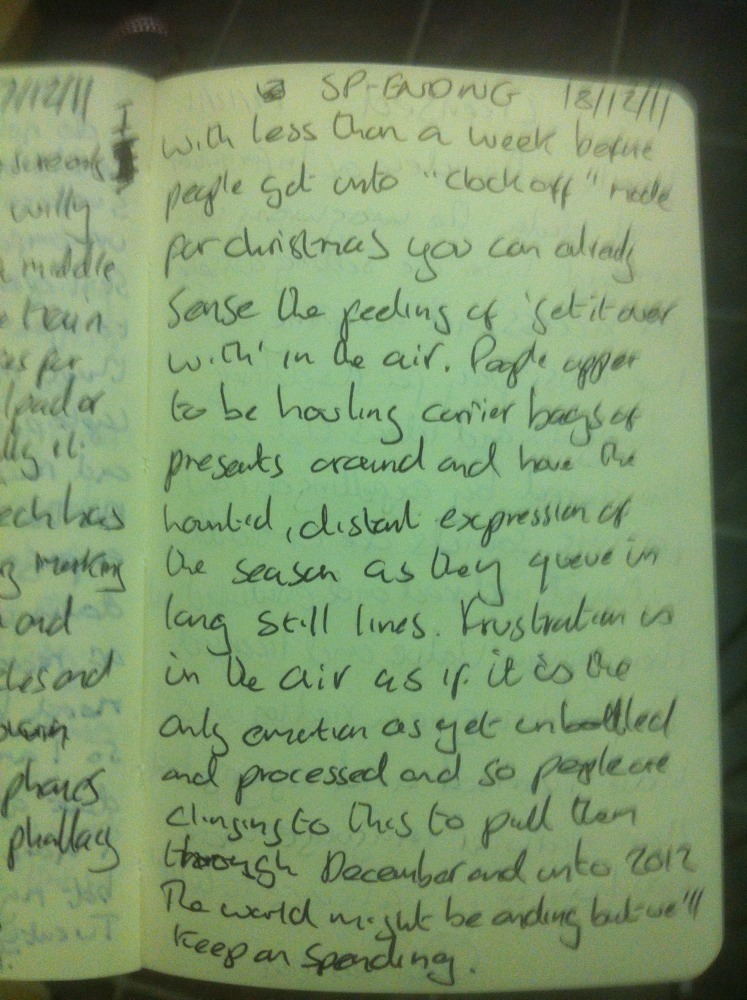 7/12/11
willy
middle
phones
phallacy
SP-ENDING 18/12/11
With less than a week before
people get into "clock off" mode
for christmas you can already
sense the feeling of 'get it over
with' in the air. People appear
to be hauling carrier bags of
presents around and have the
haunted, distant expression of
the season as they queue in
long still lines. Frustration is
in the air as if it is the
only emotion as yet unbottled
and processed and so people are
clinging to this to pull them
through December and into 2012
The world might be ending but we'll
keep on spending.